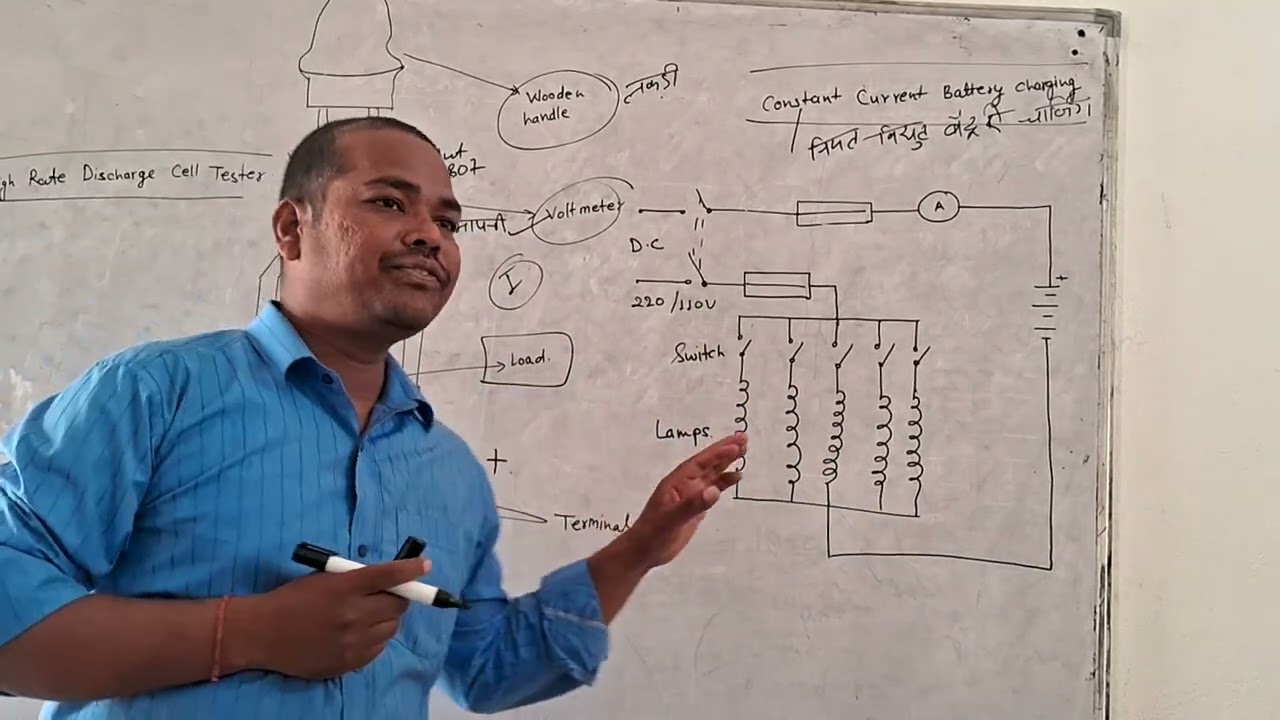 Wooden
handle
लकड़ी
gh Rate Discharge Cell Tester
807
Voltmeter
I
Load.
+
Terminal
Constant Current Battery charging
D.C
220/110V
A
+
Switch
Lamps.